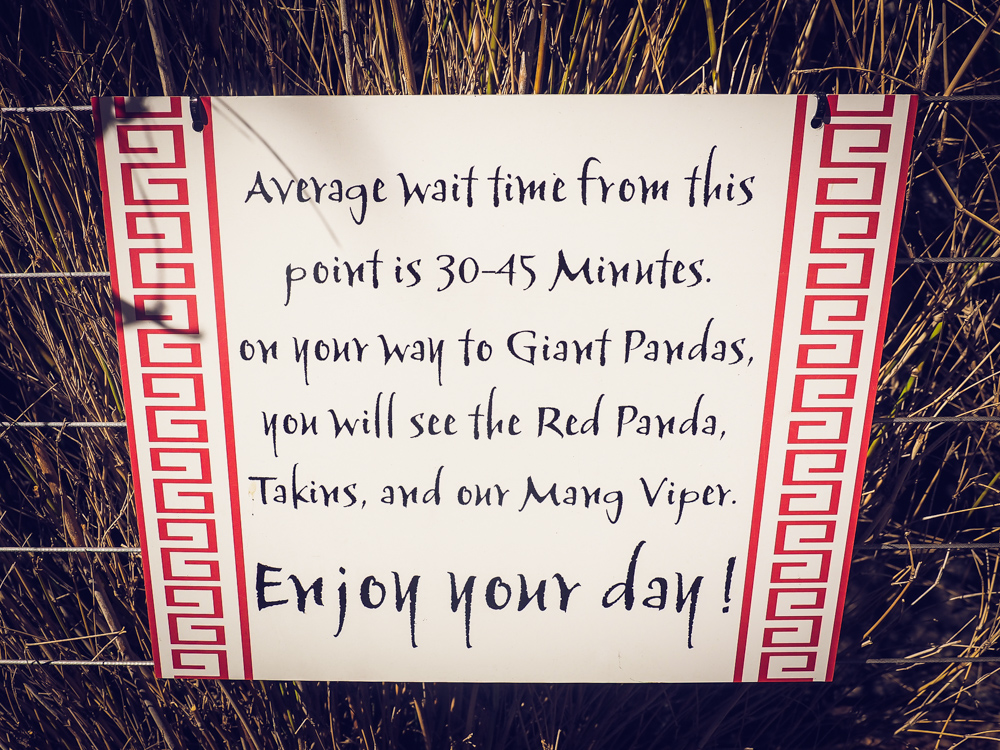 Average wait time from this
point is 30-45 Minutes.
on your way to Giant Pandas,
you will see the Red Panda,
Takins, and our Mang Viper.
Enjoy your day!